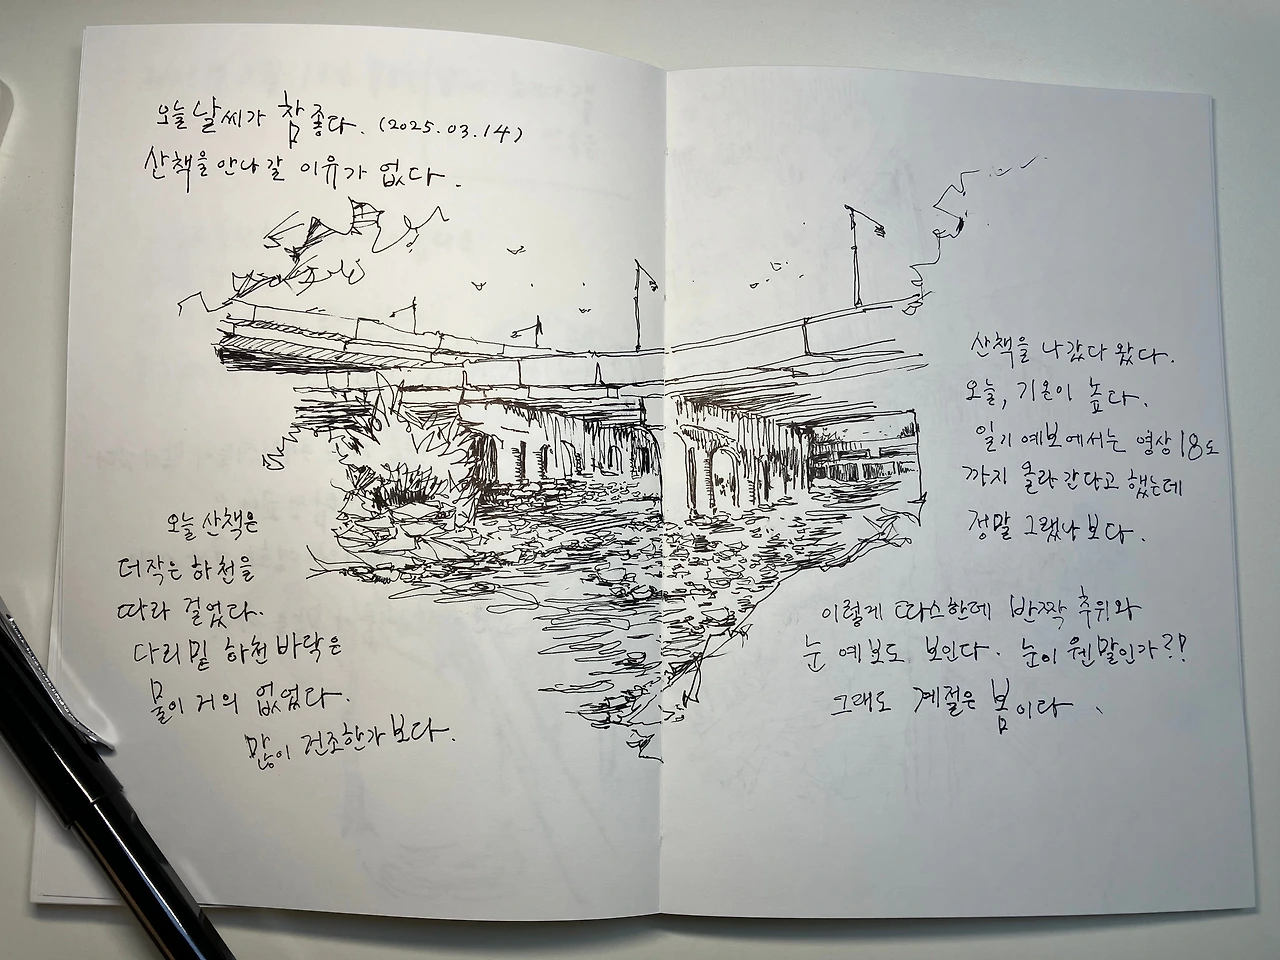 오늘 날씨가 참 좋다. (2025.03.14)
산책을 안나갈 이유가 없다.
오늘 산책은
더 작은 하천을
따라 걸었다.
다리 밑 하천 바닥은
물이 거의 없었다.
많이 건조한가 보다.
산책을 나갔다 왔다.
오늘, 기온이 높다.
일기예보에서는 영상 18도
까지 올라간다고 했는데
정말 그랬나 보다.
이렇게 따스한데 반짝 추위와
눈 예보도 보인다. 눈이 웬말인가?!
그래도 계절은 봄이다.